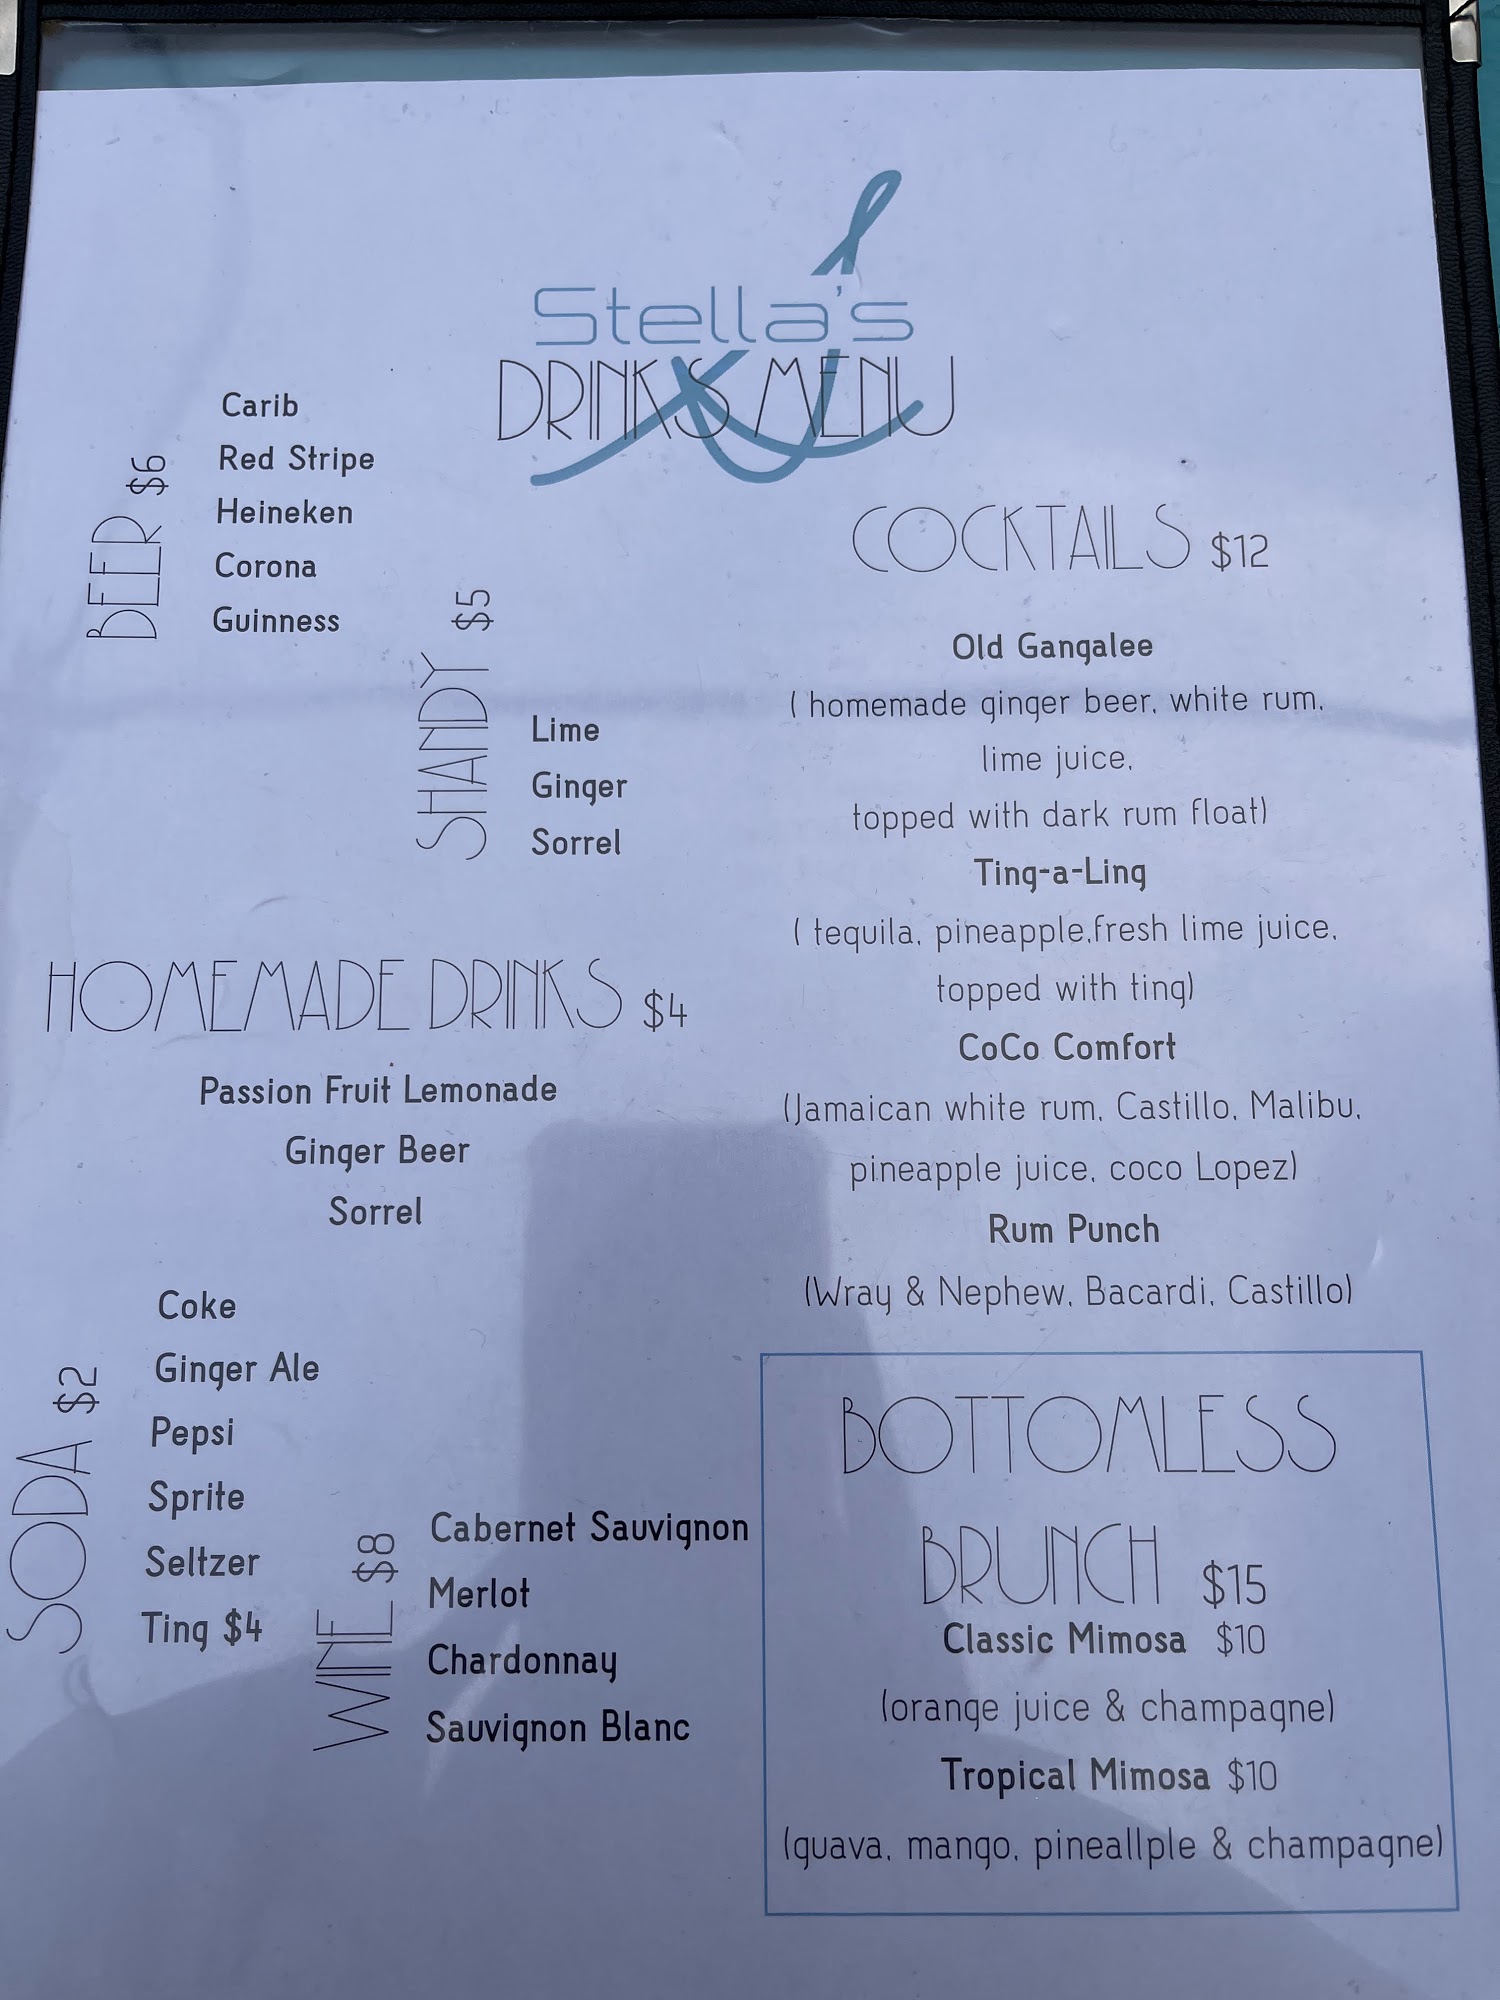 Stella's
DRINKS MENU
BEER $6
Carib
Red Stripe
Heineken
Corona
Guinness
SHANDY $5
Lime
Ginger
Sorrel
HOMEMADE DRINKS $4
Passion Fruit Lemonade
Ginger Beer
Sorrel
SODA $2
Coke
Ginger Ale
Pepsi
Sprite
Seltzer
Ting $4
WINE $8
Cabernet Sauvignon
Merlot
Chardonnay
Sauvignon Blanc
COCKTAILS $12
Old Gangalee
( homemade ginger beer, white rum,
lime juice,
topped with dark rum float)
Ting-a-Ling
( tequila, pineapple,fresh lime juice,
topped with ting)
CoCo Comfort
(Jamaican white rum, Castillo, Malibu,
pineapple juice, coco Lopez)
Rum Punch
(Wray & Nephew, Bacardi, Castillo)
BOTTOMLESS
BRUNCH $15
Classic Mimosa $10
(orange juice & champagne)
Tropical Mimosa $10
(guava, mango, pineallple & champagne)